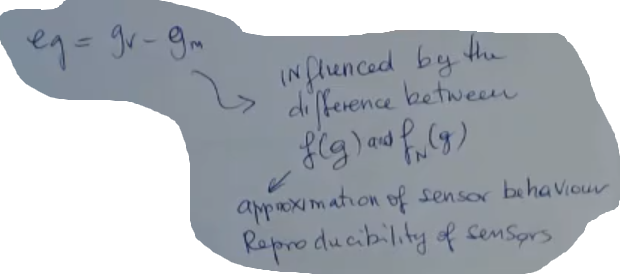 eg = gr - gm
influenced by the
difference between
f(g) and fN(g)
approximation of sensor behaviour
Reproducibility of sensors